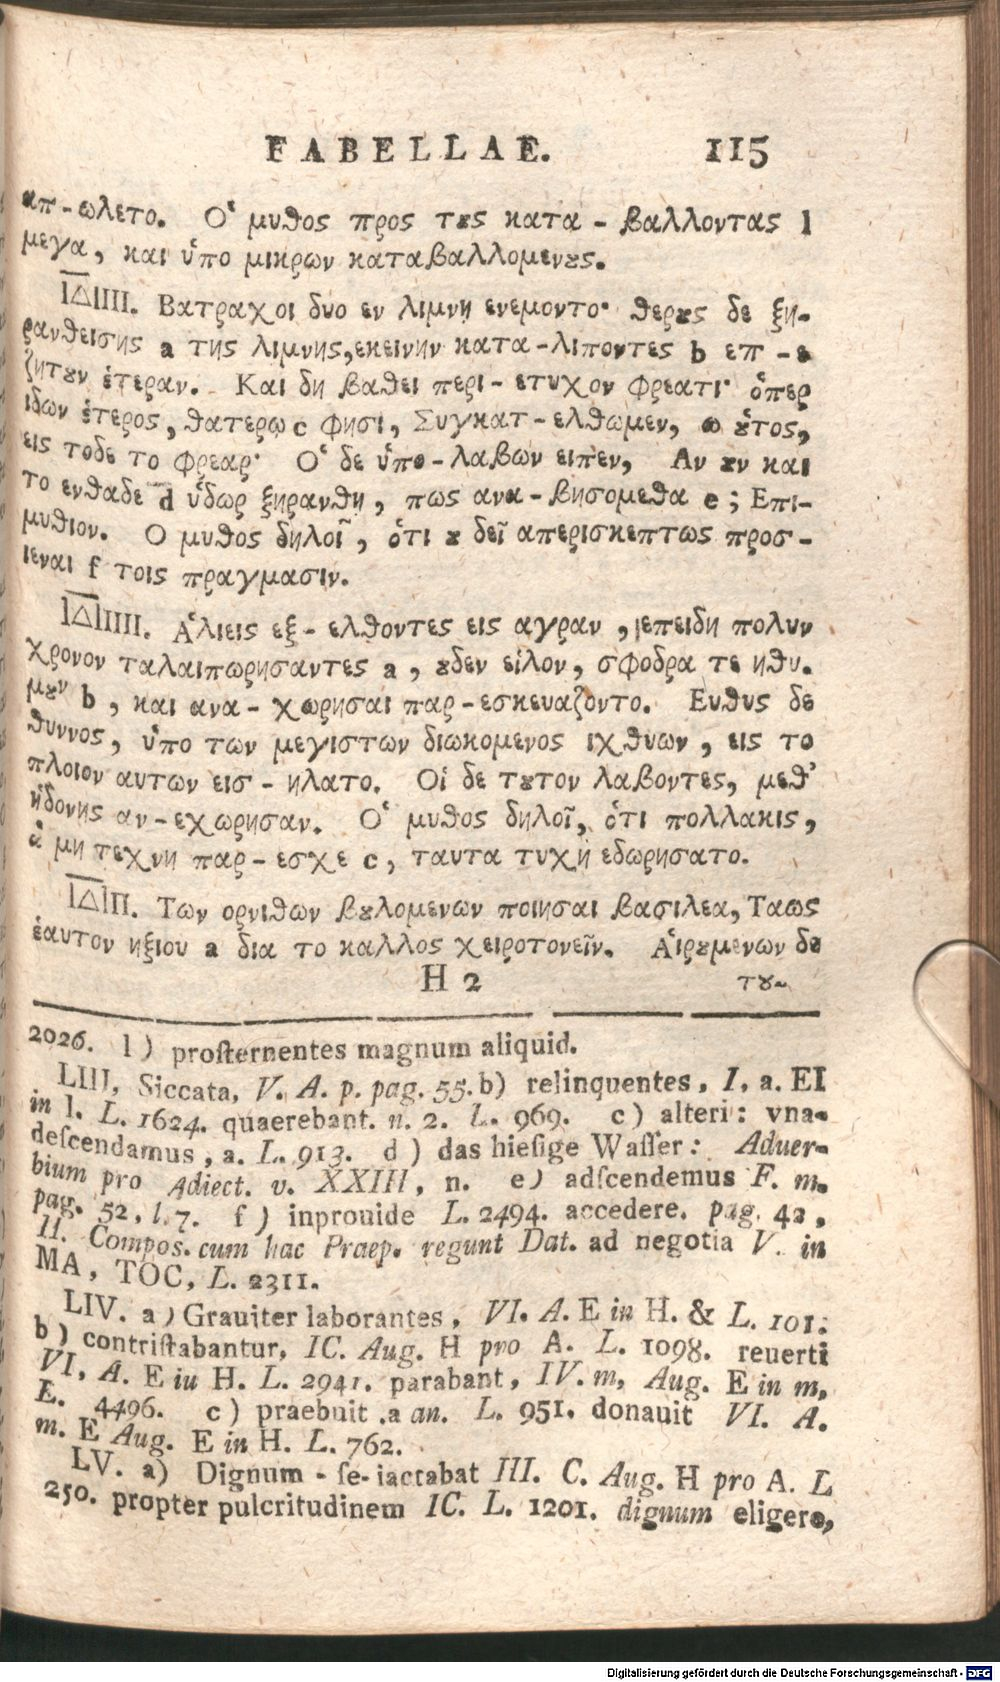 FABELLAE. 115
απ-ωλετο. Ὁ μυθος προς τȣς κατα-βαλλοντας l
μεγα, και ὑπο μικρων καταβαλλομενȣς.
|Δ|III. Βατραχοι δυο εν λιμνη ενεμοντο· θερȣς δε ξη-
ρανθεισης a της λιμνης, εκεινην κατα-λιποντες b επ-ε
ζητȣν ἑτεραν. Και δη βαθει περι-ετυχον φρεατι· ὁπερ
ιδων ἑτερος, θατερῳ c φησι, Συγκατ-ελθωμεν, ω ȣ̔τος,
εις τοδε το φρεαρ· Ὁ δε ὑπο-λαβων ειπεν, Αν ȣν και
το ενθαδε d ὑδωρ ξηρανθη, πως ανα-βησομεθα e; Επι-
μυθιον. Ο μυθος δηλοῖ, ὁτι ȣ δεῖ απερισκεπτως προσ-
ιεναι f τοις πραγμασιν.
|Δ|IIII. Ἁλιεις εξ-ελθοντες εις αγραν, επειδη πολυν
χρονον ταλαιπωρησαντες a, ȣδεν εἱλον, σφοδρα τε ηθυ-
μȣν b, και ανα-χωρησαι παρ-εσκευαζοντο. Ευθυς δε
θυννος, ὑπο των μεγιστων διωκομενος ιχθυων, εις το
πλοιον αυτων εισ-ηλατο. Οἱ δε τȣτον λαβοντες, μεθ'
ἡδονης αν-εχωρησαν. Ὁ μυθος δηλοῖ, ὁτι πολλακις,
ἁ μη τεχνη παρ-εσχε c, ταυτα τυχη εδωρησατο.
|Δ|Π. Των ορνιθων βȣλομενων ποιησαι βασιλεα, Ταως
ἑαυτον ηξιου a δια το καλλος χειροτονεῖν. Αἱρȣμενων δε
H 2 τȣ~
2026. l) proſternentes magnum aliquid.
LIII, Siccata, V. A. p. pag. 55. b) relinquentes, I, a. EI
in l. L. 1624. quaerebant. n. 2. L. 969. c) alteri: vna-
deſcendamus, a. L. 913. d) das hieſige Waſſer: Aduer-
bium pro Adiect. v. XXIII, n. e) adſcendemus F. m.
pag. 52, l. 7. f) inprouide L. 2494. accedere. pag. 42,
II. Compos. cum hac Praep. regunt Dat. ad negotia V. in
MA, TOC, L. 2311.
LIV. a) Grauiter laborantes, VI. A. E in H. & L. 101.
b) contriſtabantur, IC. Aug. H pro A. L. 1098. reuerti
VI, A. E in H. L. 2941. parabant, IV. m, Aug. E in m,
L. 4496. c) praebuit .a an. L. 951. donauit VI. A.
m. E Aug. E in H. L. 762.
LV. a) Dignum-ſe-iactabat III. C. Aug. H pro A. L
250. propter pulcritudinem IC. L. 1201. dignum eligere,
Digitalisierung gefördert durch die Deutsche Forschungsgemeinschaft - DFG